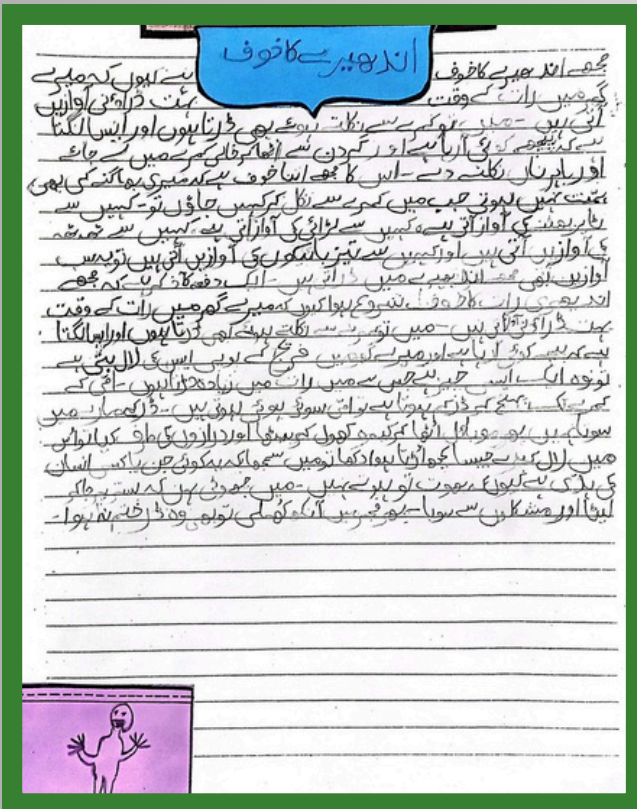 اندھیرے کا خوف
مجھے اندھیرے کا خوف ہے کیوں کہ میرے
گھر میں رات کے وقت بہت ڈراؤنی آوازیں
آتی ہیں - میں تو کمرے سے نکلتے ہوئے بھی ڈرتا ہوں اور ایسا لگتا
ہے کہ پیچھے کوئی آ رہا ہے اور گردن سے اٹھا کر خالی کمرے میں لے جائے
اور باہر نہ نکلنے دے - اس کا مجھے اتنا خوف ہے کہ میری بھاگنے کی بھی
ہمت نہیں ہوتی جب میں کمرے سے نکل کر کہیں جاؤں تو - کہیں سے
کی آواز آتی ہے کہیں سے لڑائی کی آواز آتی ہے کہیں سے
کی آوازیں آتی ہیں اور کہیں سے تیز بائیکوں کی آوازیں آتی ہیں تو یہ سب
آوازیں بھی مجھے اندھیرے میں ڈراتی ہیں - ایک دفعہ کا ذکر ہے کہ مجھے
اندھیری رات کا خوف شروع ہوا کیوں کہ میرے گھر میں رات کے وقت
بہت ہیں - میں تو کمرے سے نکلتے ہوئے بھی ڈرتا ہوں اور ایسا لگتا
ہے کہ پیچھے کوئی آ رہا ہے اور میرے فریج کے یو پی ایس کی لال بتی ہے
تو وہ ایک ایسی چیز ہے جس سے میں رات میں زیادہ ڈرتا ہوں - امی کے
کمرے تک پہنچ کے ڈر کم ہوتا ہے تو امی سوئی ہوئی ہوتی ہیں - ڈر کے مارے میں
سوتا نہیں پھر موبائل اٹھا کر کیمرہ کھول کر بیٹھا اور درازوں کی طرف کیا تو اس
میں لال کیڑے جیسا کچھ اڑتا ہوا دکھا تو میں سمجھا کہ یہ کوئی جن یا کسی انسان
کی ہے کیوں کہ بھوت تو ہوتے نہیں - میں بستر پہ جا کے
لیٹا اور مشکلوں سے سویا - پھر فجر میں آنکھ کھلی تو بھی وہ ڈر ختم نہ ہوا -